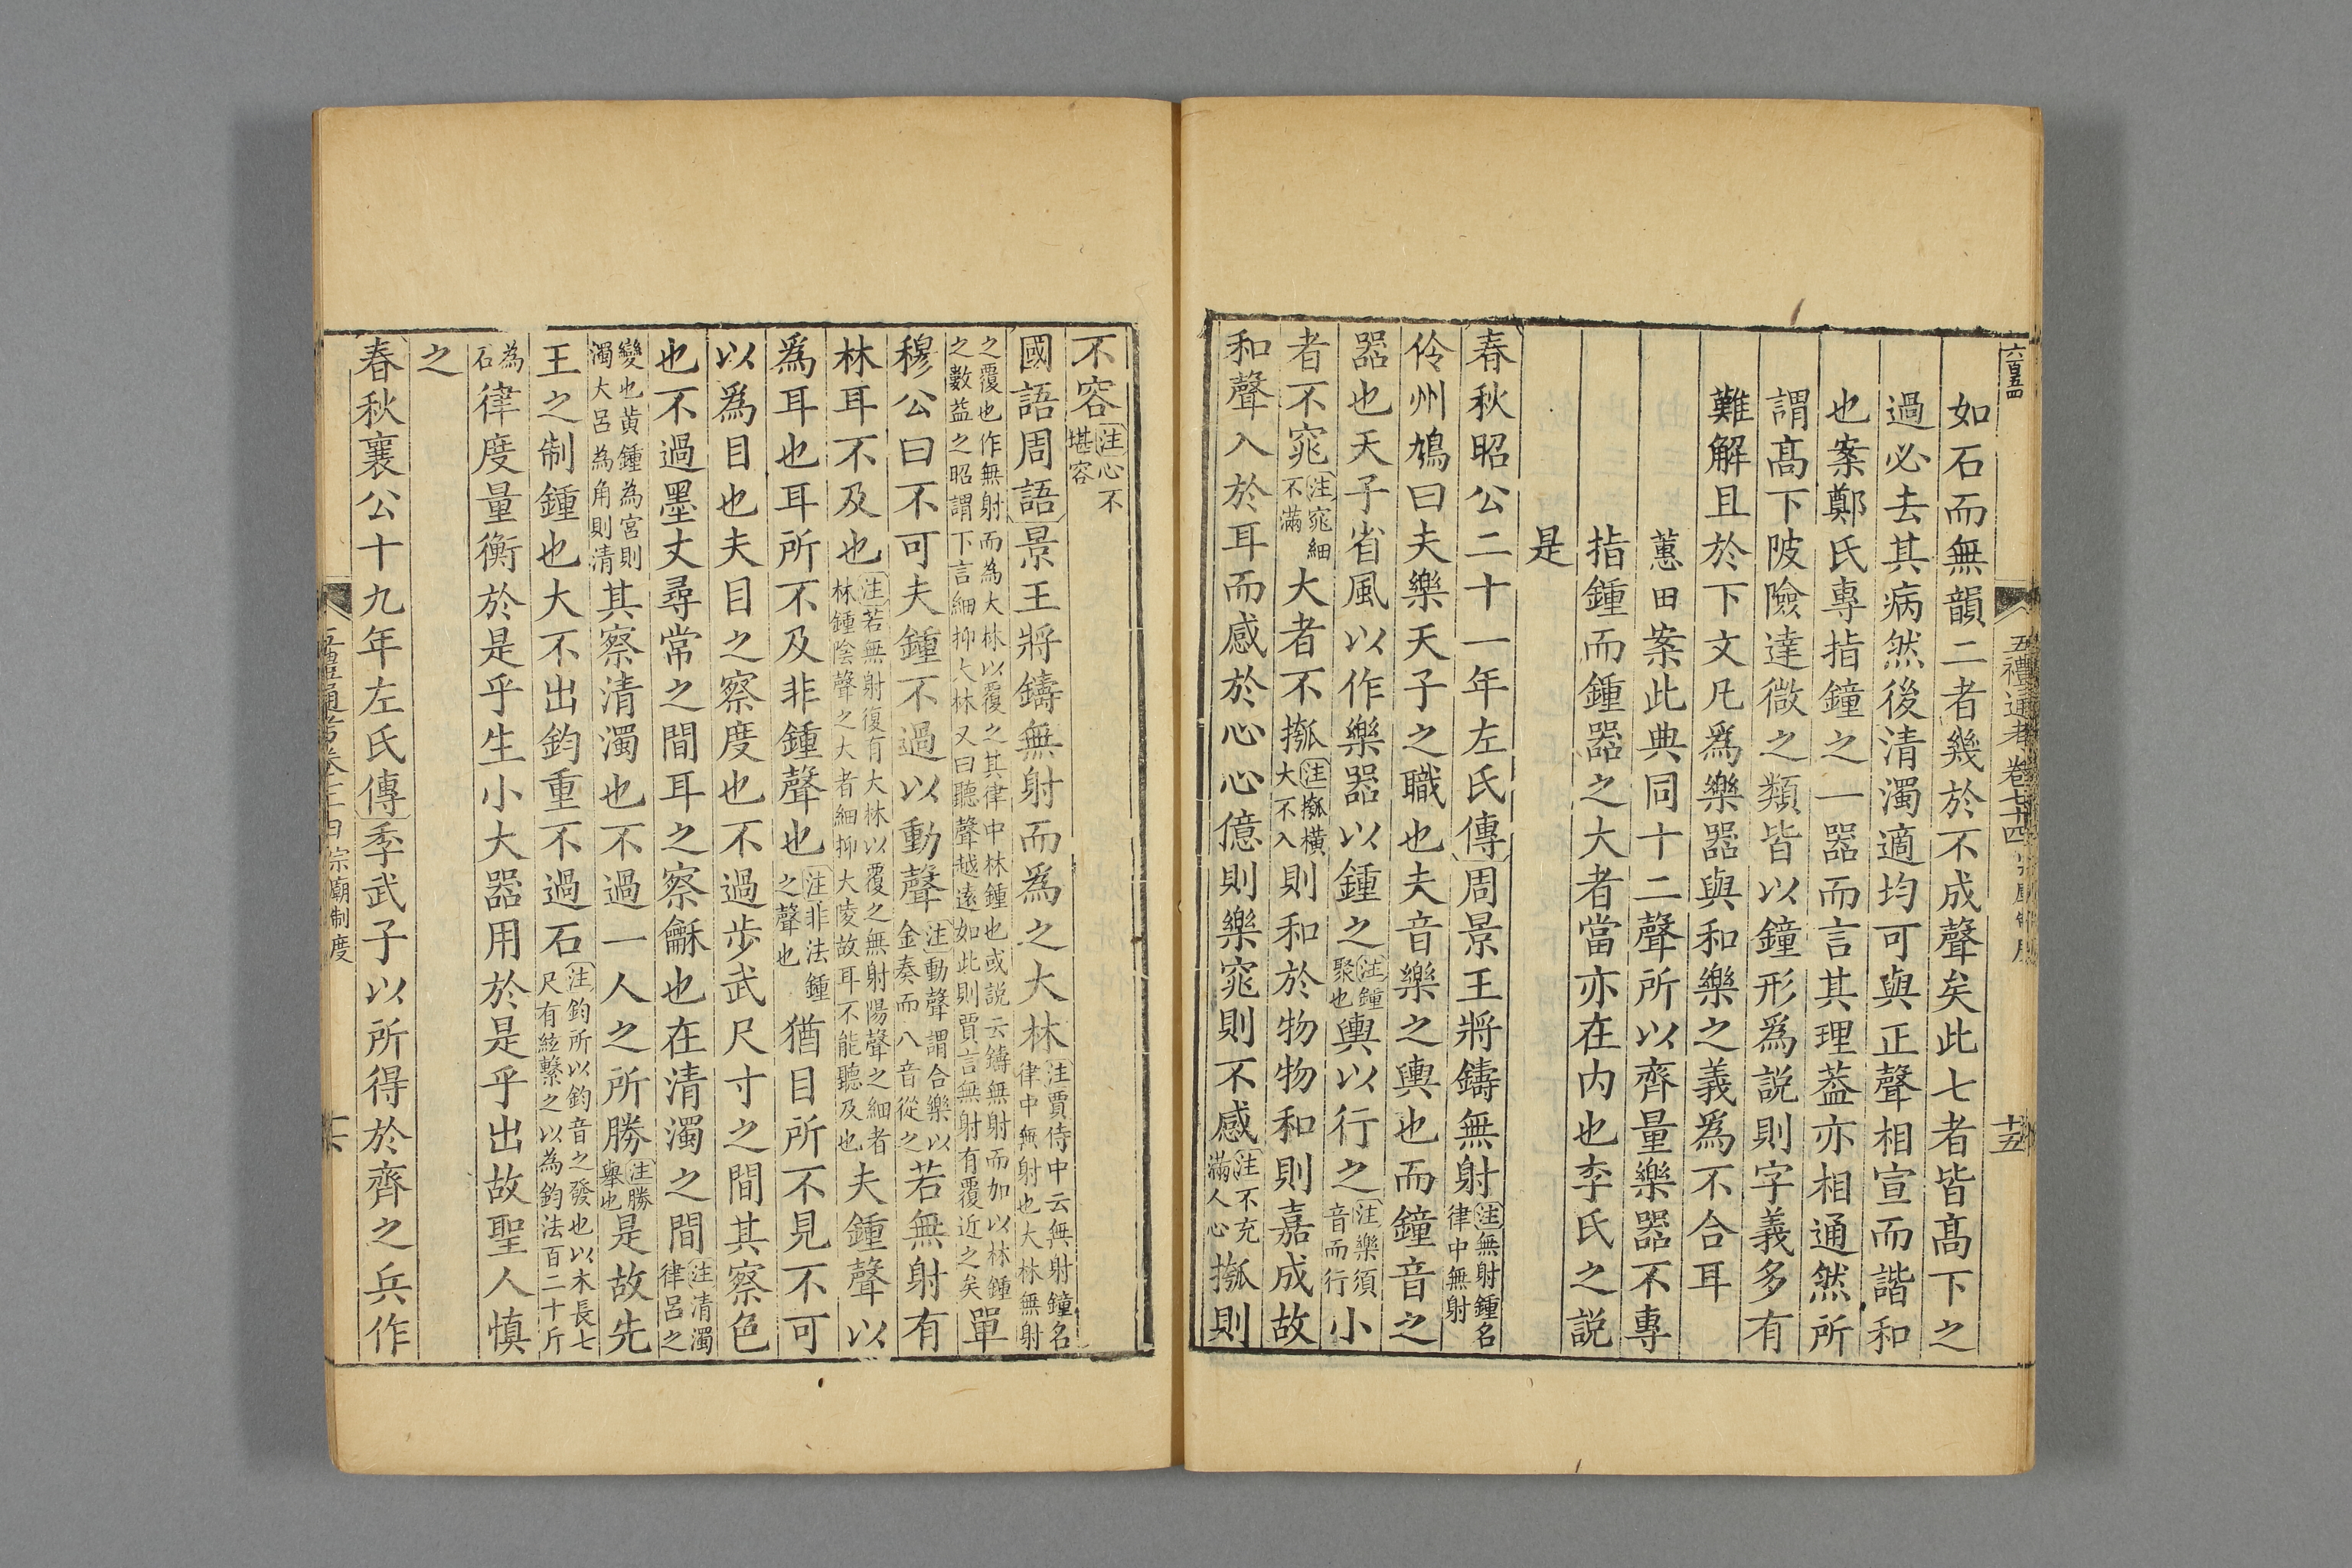 六百五四
五禮通考卷七十四
十五
如石而無韻二者幾於不成聲矣此七者皆高下之
過必去其病然後清濁適均可與正聲相宣而諧和
也案鄭氏專指鐘之一器而言其理葢亦相通然所
謂高下陂險達微之類皆以鐘形爲說則字義多有
難解且於下文凡爲樂器與和樂之義爲不合耳
蕙田案此典同十二聲所以齊量樂器不專
指鍾而鍾器之大者當亦在内也李氏之説
是
春秋昭公二十一年左氏傳周景王將鑄無射注無射鍾名律中無射
伶州鳩曰夫樂天子之職也夫音樂之輿也而鐘音之
器也天子省風以作樂器以鍾之注鍾聚也輿以行之注樂須音而行小
者不窕注窕細不滿大者不摦注摦橫大不入則和於物物和則嘉成故
和聲入於耳而感於心心億則樂窕則不感注不充滿人心摦則
不容注心不堪容
國語周語景王將鑄無射而爲之大林注賈侍中云無射鐘名律中無射也大林無射
之覆也作無射而為大林以覆之其律中林鍾也或説云鑄無射而加以林鍾之數益之昭謂下言細抑大林又曰聽聲越遠如此則賈言無射有覆近之矣單
穆公曰不可夫鍾不過以動聲注動聲謂合樂以金奏而八音從之若無射有
林耳不及也注若無射復有大林以覆之無射陽聲之細者林鍾陰聲之大者細抑大陵故耳不能聽及也夫鍾聲以
爲耳也耳所不及非鍾聲也注非法鍾之聲也猶目所不見不可
以爲目也夫目之察度也不過步武尺寸之間其察色
也不過墨丈尋常之間耳之察龢也在清濁之間注清濁律呂之
變也黄鍾為宮則濁大呂為角則清其察清濁也不過一人之所勝注勝舉也是故先
王之制鍾也大不出鈞重不過石注鈞所以鈞音之發也以木長七尺有絃繫之以為鈞法百二十斤
為石律度量衡於是乎生小大器用於是乎出故聖人慎
之
春秋襄公十九年左氏傳季武子以所得於齊之兵作
宗廟制度